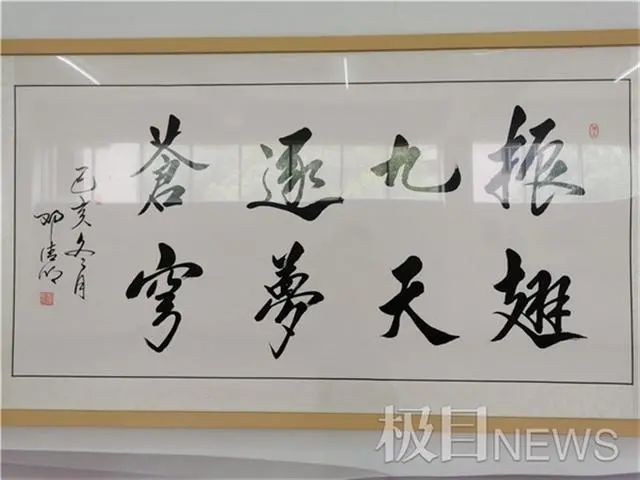 振翅
九天
逐夢
蒼穹
己亥冬月
邓清明
极目NEWS